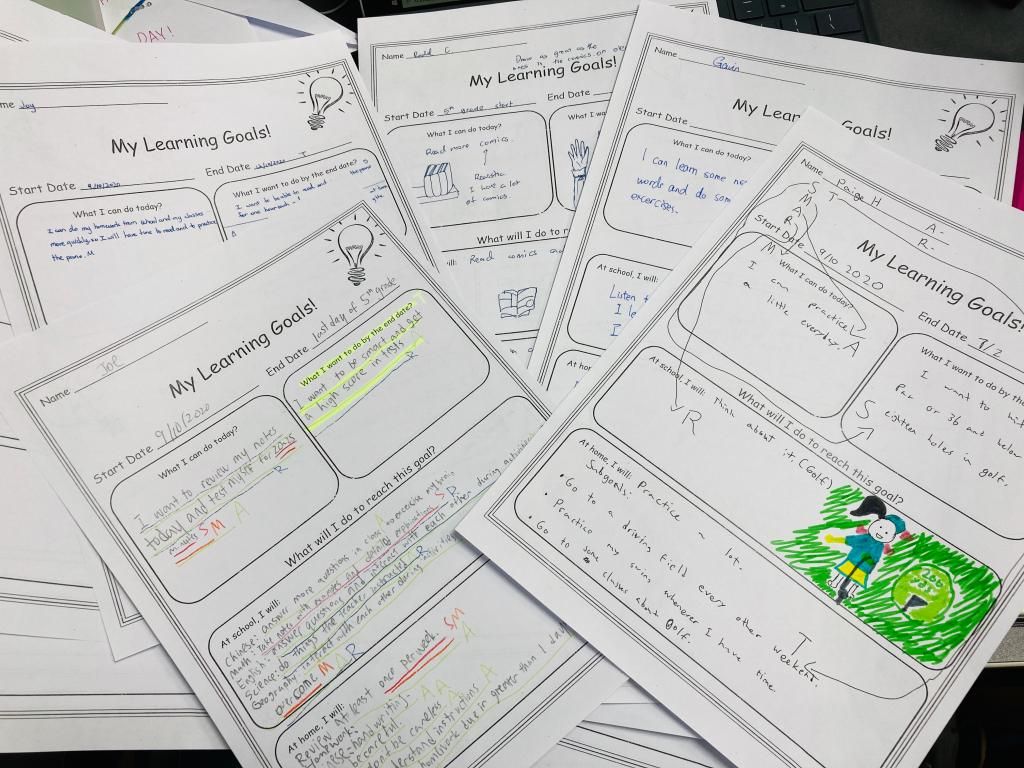 DAY!
Name Joy
My Learning Goals!
Start Date 9/10/2020
End Date
What I can do today?
I can do my homework from school and my classes
more quickly, so I will have time to read and to practice
the piano. M
What I want to do by the end date? S
I want to be able to read and
for one hour each
Name C.
Draw as great as the
ones in the comics or
My Learning Goals!
Start Date 5th grade start
End Date
What I can do today?
Read more comics.
Realistic
I love a lot
of comics.
What I wa
What will I do to re
Read comics a
Name Gavin
My Learning Goals!
Start Date
What I can do today?
I can learn some ne
words and do som
exercises.
At school, I will:
Listen t
I le
I
At home, I will:
Name Joe
My Learning Goals!
Start Date 9/10/2020
End Date last day of 5th grade
What I can do today?
I want to review my notes
today and test myself for 20-25
minutes SM A R
What I want to do by the end date? T
I want to be smart and get
a high score in tests.
R
What will I do to reach this goal?
At school, I will:
Chinese: answer more questions in class A to exercise my brain.
Math: Take notes with
English: answer questions and interact with each other during activities
Science: do things the teacher instructed A R
Geography: interact with each other during
overcome M A R
At home, I will:
Review at least one per week SM
handwriting. A A
be careful. A
don't be careless A
understand instructions A
homework but is greater than 1
Name Paige H
S
M
A
R
T
A-
R-
My Learning Goals!
Start Date 9/10 2020
End Date 9/2
M
What I can do today?
I can practice
a little everyday. A
What I want to do by the
I want to hit
Par or 36 and below
S eighteen holes in golf.
What will I do to reach this goal?
At school, I will: Think about it. (Golf)
R
At home, I will: Practice a lot.
Subgoals:
• Go to a driving field every other weekend. T
• Practice my swing whenever I have time.
• Go to some classes about Golf.